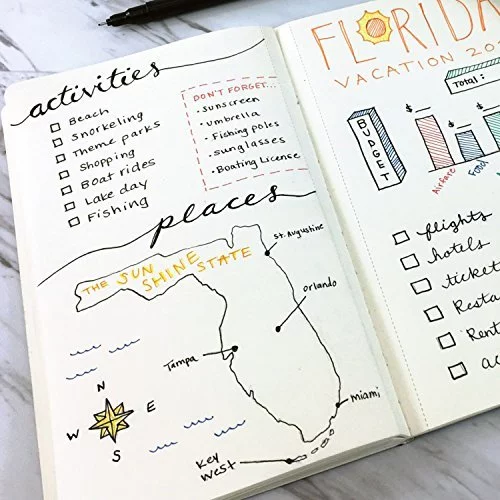 activities
Beach
Snorkeling
Theme parks
Shopping
Boat rides
Lake day
Fishing
DON'T FORGET...
• Sunscreen
• umbrella
• Fishing poles
• sunglasses
• Boating License
places
THE SUN
SHINE STATE
St. Augustine
Orlando
Tampa
Miami
Key
West
N
W E
S
FLORIDA
VACATION
Total:
BUDGET
$
$
Airfare
Food
flights
hotels